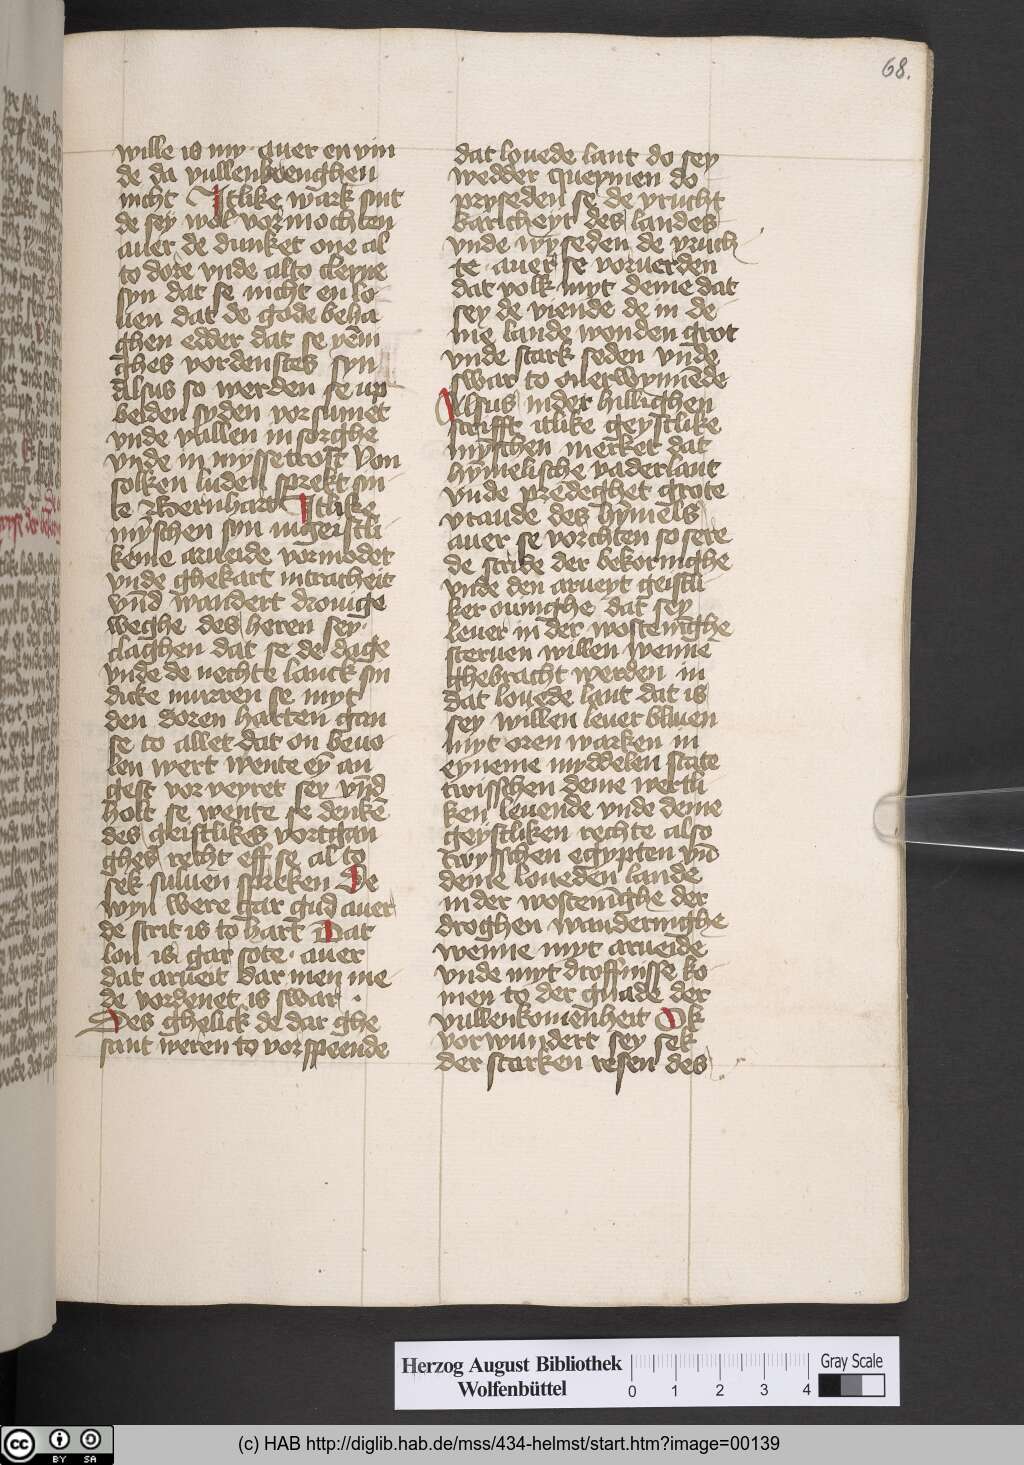 68.
wille is my · auer en vin
de da vullenbrenghen
nicht Itlike wark sint
de sey wol vormochten
auer de dunket one al
to dore vnde alto cleyne
syn dat se nicht en lo
uen dat de gode beha
ghen edder dat se yēni
ghes vordenstes syn
Alsus so werden se up
beiden syden vorsumet
vnde vallen in sorghe
vnde in myssetrost Von
solken luden sprekt sin
te Bernhard Itlike
mȳschen syn in geistli
keme arueide vormodet
vnde ghekart in tracheit
vn̄d wandert drouige
weghe des heren sey ·
claghen dat se de dage
vnde de nechte lanck sin
dicke murren se myt
den doren harten gan
se to allet dat on beuo
len wert wente eȳ an
gest vorveyret sey vn̄d
holt se wente se denkē
des geistlikes vortgan
ghes recht eff se al to
sek suluen spreken De
wyn were gar gud auer
de strit is to hart Dat
lon is gar sote · auer
dat arueit dar men me
de vordenet is swar ·
Des ghelick de dar ghe
sant weren to vorspeende
dat louede lant do sey
wedder queymen do
pryseden se de vrucht
baricheyt des landes
vnde wyseden de vruch
te · auer se voruerden
dat volk myt deme dat
sey de viende de in de
me lande wonden grot
vnde stark seden vnde
swar to ouerwynnēde
Alsus in der hillighen
scrifft itlike geystlike
mȳschen merket dat
hȳmelische vaderlant
vnde predeghet grote
vraude des hymels
auer se vorchten so sere
de stride der bekoringhe
vnde den arueyt geistli
ker ouinghe dat sey
leuer in der wosteninghe
steruen willen wenne
ghebracht werden in
dat louede lant dat is
sey willen leuer bliuen
myt oren warken in
eyneme myddelen state
twisschen deme wertli
ken leuende vnde deme
geystliken rechte also
twysschen egypten vn̄
deme loueden lande
in der wosteninghe der
droghen wanderinghe
wenne myt arueide
vnde myt droffnisse ko
men to der gnade der
vullenkomenheit Ok
vorwundert sey sek
der starken resen des
Herzog August Bibliothek
Wolfenbüttel
0 1 2 3 4
Gray Scale
cc BY SA
(c) HAB http://diglib.hab.de/mss/434-helmst/start.htm?image=00139